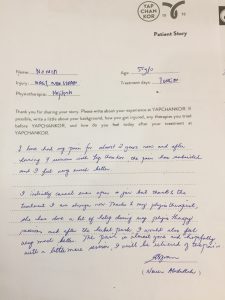 YAP
CHAN
KOR
Patient Story
Name:
Age: 51y/o
Injury:
Treatment days:
Physiotherapist:
Thank you for sharing your story. Please write about your experience at YAPCHANKOR. If
possible, write a little about your background, how you got injured, any therapies you tried
before YAPCHANKOR, and how do you feel today after your treatment at
YAPCHANKOR.
I have had my pain for almost 2 years now and after
having 7 session with Yap chankor the pain has subsided
and I feel very much better
I initially cannot even open a jar but thanks to the
treatment I am stronger now. Thanks to my physiotherapist,
she has done a lot of during my physiotherapy
session and after the I would also feel
very much better. The pain is almost gone and hopefully
with a little more session I will be relieved of